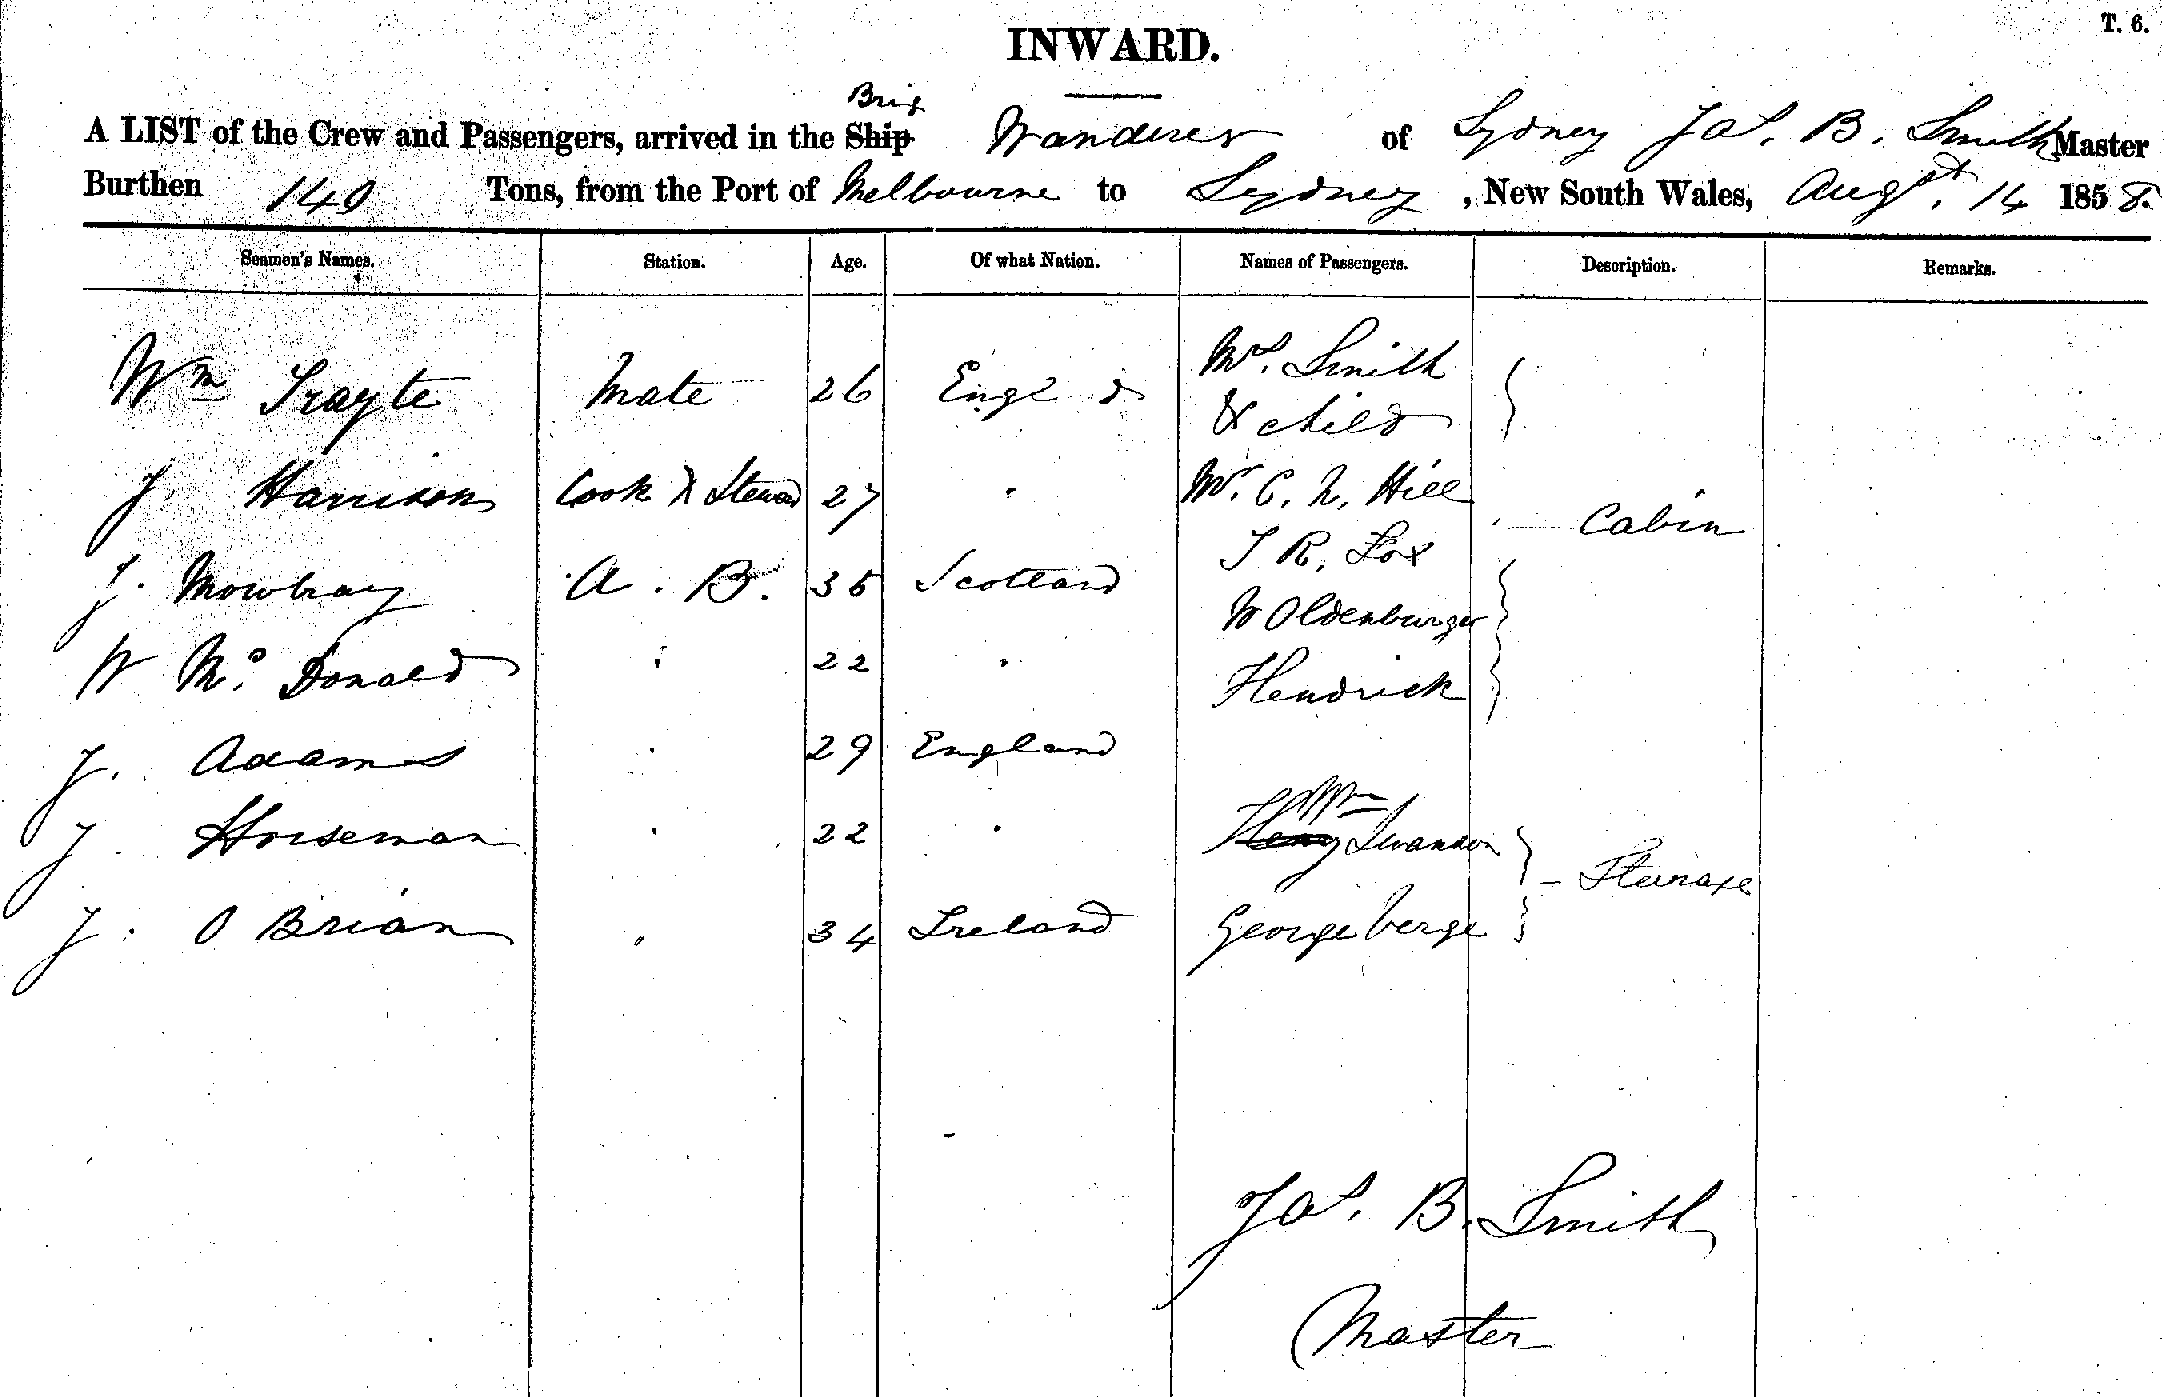 T. 6.
INWARD.
Brig
A LIST of the Crew and Passengers, arrived in the Ship Wanderer of Sydney Jas. B. Smith Master
Burthen 140 Tons, from the Port of Melbourne to Sydney, New South Wales, Augst. 14 1858.
Seamen's Names. Station. Age. Of what Nation. Names of Passengers. Description. Remarks.
Mrs. Smith
Wm Trayte Mate 26 Engl d
& child
J Harrison Cook & Steward 27 " Mr. C. N. Hill
Cabin
T R. Fox
J. Mowbray A. B. 35 Scotland
W Oldenburger
W Mc. Donald " 22 "
Hendrick
J. Adams " 29 England
J Horseman " 22 " Swanson
Steerage
J. O Brian " 34 Ireland George Verge
Jas. B. Smith
Master